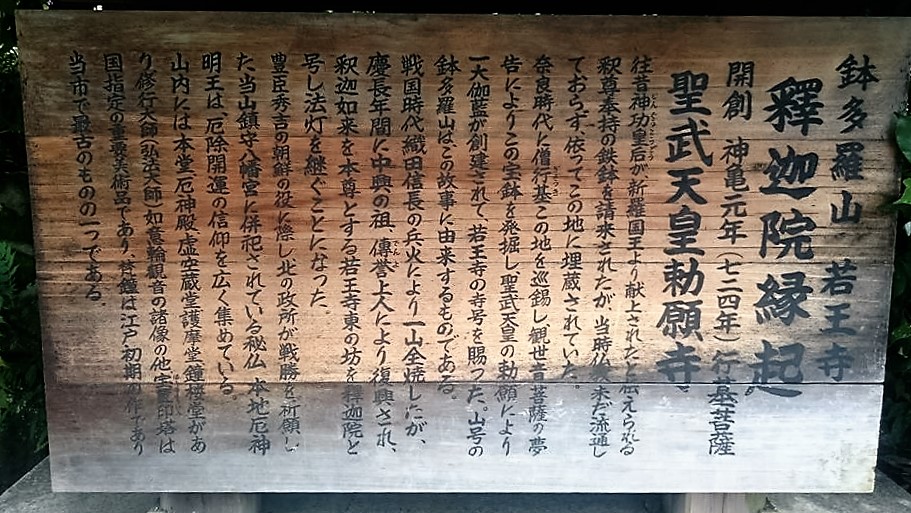 鉢多羅山 若王寺
釋迦院縁起
開創 神亀元年(七二四年)行基菩薩
聖武天皇勅願寺
往昔神功皇后が新羅国王より献上されたと伝えられる
釈尊奉持の鉄鉢を請来されたが、当時仏教未だ流通し
ておらず、依ってこの地に埋蔵されていた。
奈良時代に僧行基この地を巡錫し、観世音菩薩の夢
告によりこの宝鉢を発掘し聖武天皇の勅願により
一大伽藍が創建されて、若王寺の寺号を賜った。山号の
鉢多羅山はこの故事に由来するものである。
戦国時代、織田信長の兵火により一山全焼したが、
慶長年間に中興の祖、傳誉上人により復興され、
釈迦如来を本尊とする若王寺東の坊を釋迦院と
号し法灯を継ぐことになった。
豊臣秀吉の朝鮮の役に際し、北の政所が戦勝を祈願し
た当山鎮守八幡宮に併祀されている秘仏 本地厄神
明王は、厄除開運の信仰を広く集めている。
山内には本堂厄神殿虚空蔵堂護摩堂鐘楼堂があ
り、修行大師(弘法大師)如意輪観音の諸像の他宝篋印塔は
国指定の重要美術品であり、梵鐘は江戸初期の作であり
当市で最古のものの一つである。